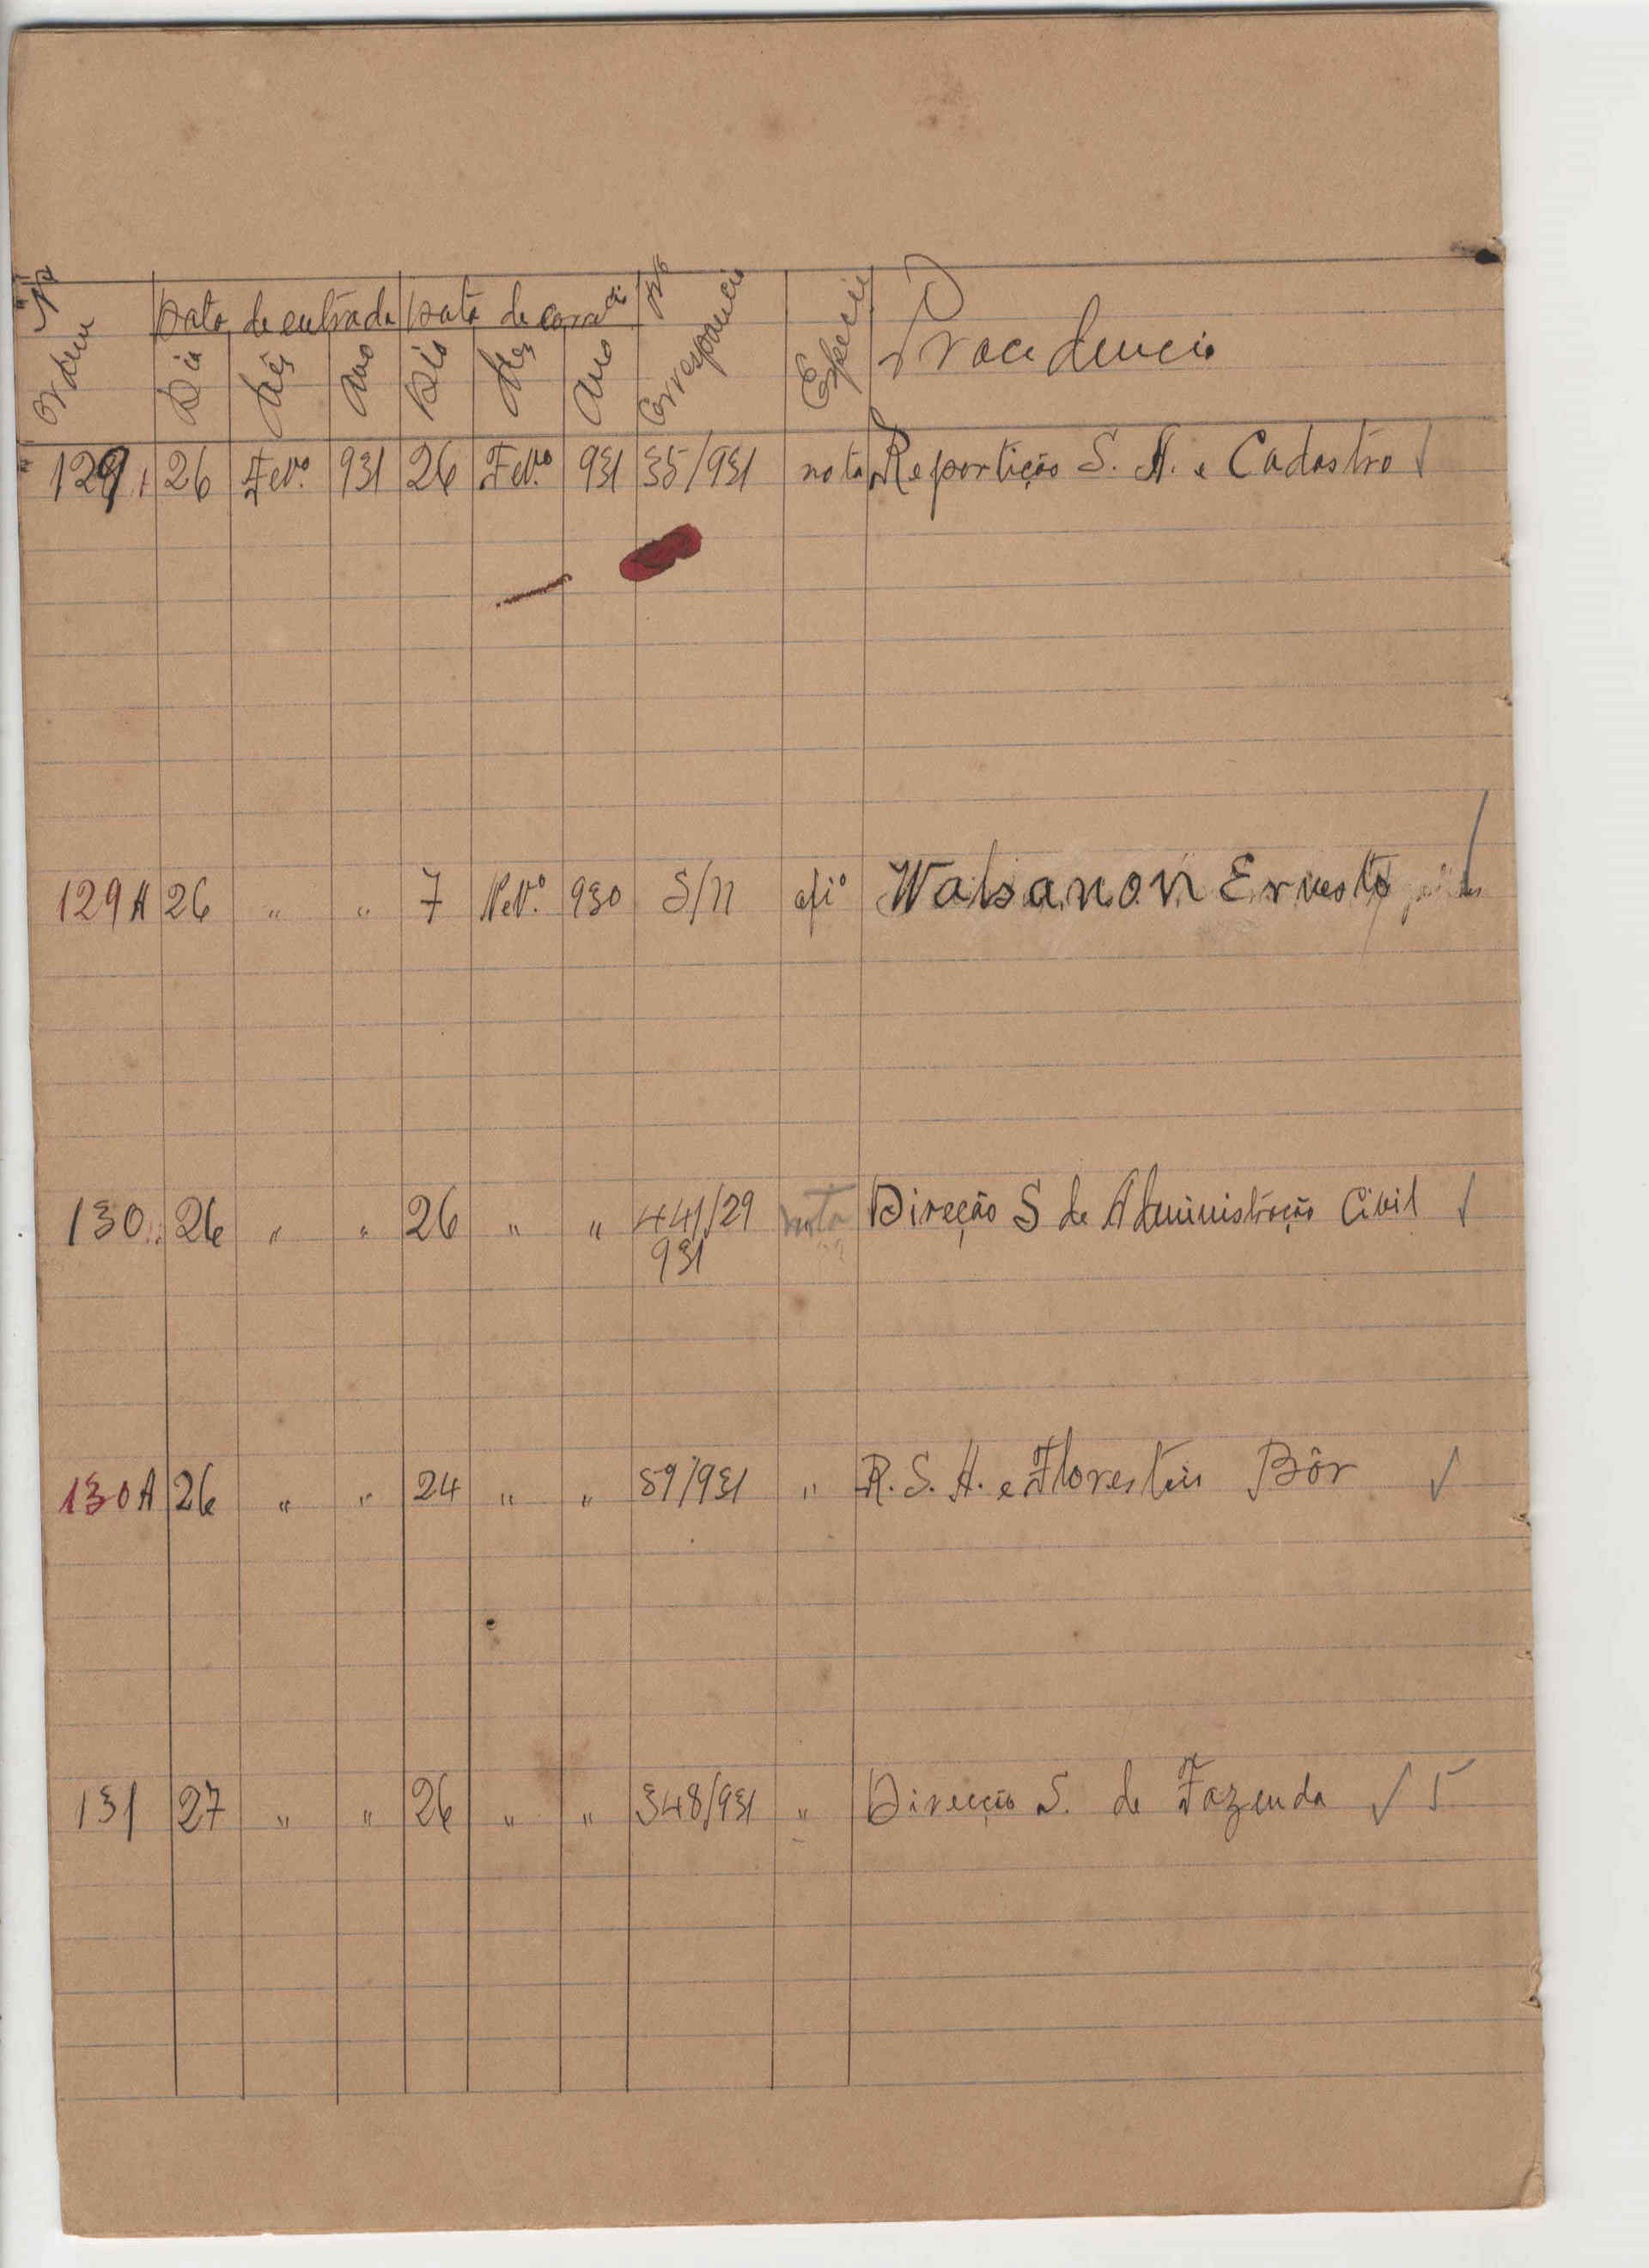 Nº Ordem Data de entrada Data de corr.cia Nº Correspondencia Especie Procedencia
Dia Mês Ano Dia Mês Ano
129 26 Fev.º 931 26 Fev.º 931 35/931 nota Repartição S. A. e Cadastro
129A 26 " " 7 Nov.º 930 S/N ofiº Walsanon Ernesto
130 26 " " 26 " " 441/29 nota Direção S de Administração Civil
931
130A 26 " " 24 " " 89/931 " R. S. A. e Florestais Bôr
131 27 " " 26 " " 348/931 " Direcção S. de Fazenda